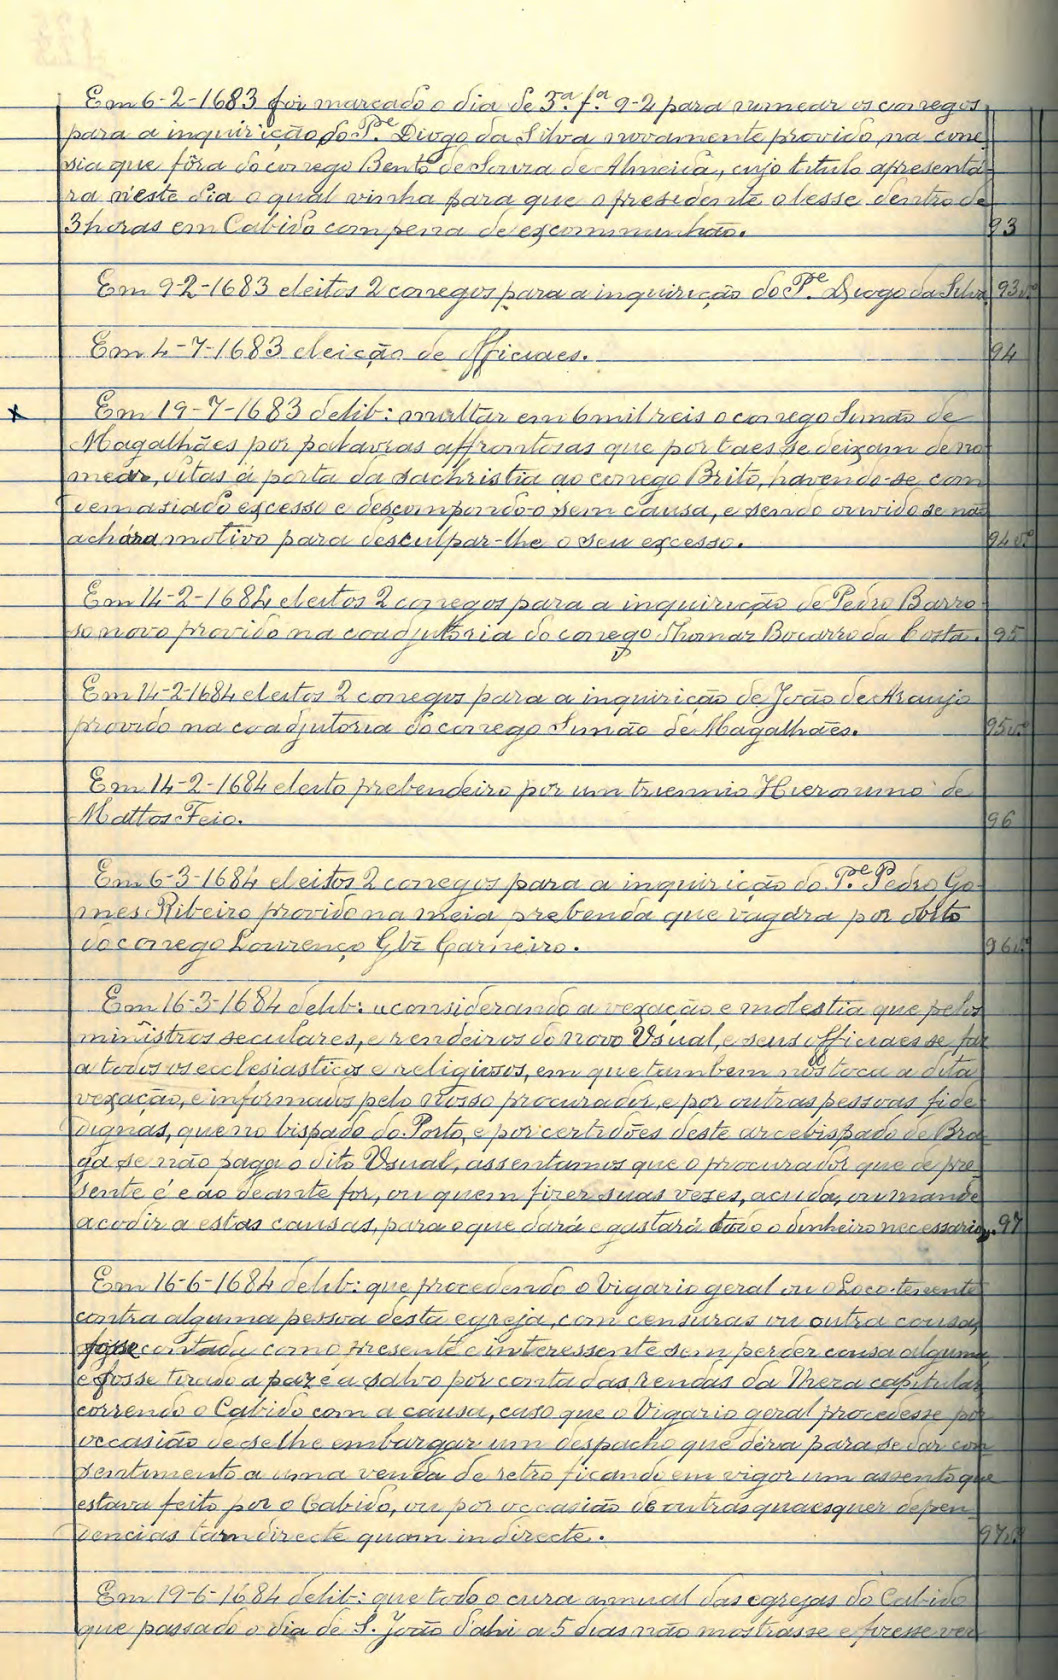 Em 6-2-1683 foi marcado o dia de 3ª. fª. 9-2 para numear os conegos
para a inquirição do Pe. Diogo da Silva novamente provido na cone-
sia que fôra do conego Bento de Souza de Almeida, cujo titulo apresentá-
ra n'este dia o qual vinha para que o presidente o lesse dentro de
3 horas em Cabido com pena de excommunhão. 93
Em 9-2-1683 eleitos 2 conegos para a inquirição do Pe. Diogo da Silva 93 vº
Em 4-7-1683 eleição de officiaes. 94
x Em 19-7-1683 delib: multar em 6 mil reis o conego Simão de
Magalhães por palavras affrontosas que por taes se deixam de no-
mear, ditas á porta da sachristia ao conego Brito, havendo-se com
demasiado excesso e descompondo-o sem causa, e sendo ouvido se não
achára motivo para desculpar-lhe o seu excesso. 94 vº
Em 14-2-1684 eleitos 2 conegos para a inquirição de Pedro Barro-
so novo provido na coadjutoria do conego Thomaz Bocarro da Costa. 95
Em 14-2-1684 eleitos 2 conegos para a inquirição de João de Araujo
provido na coadjutoria do conego Simão de Magalhães. 95 vº
Em 14-2-1684 eleito prebendeiro por um triennio Hieronimo de
Mattos Feio. 96
Em 6-3-1684 eleitos 2 conegos para a inquirição do Pe. Pedro Go-
mes Ribeiro provido na meia prebenda que vagára por obito
do conego Lourenço Glz Carneiro. 96 vº
Em 16-3-1684 delib: "considerando a vexação e molestia que pelos
ministros seculares, e rendeiros do novo Usual, e seus officiaes se faz
a todos os ecclesiasticos e religiosos, em que tambem nos toca a dita
vexação, e informados pelo nosso procurador, e por outras pessoas fide-
dignas, que no bispado do Porto, e por certidões deste arcebispado de Bra-
ga se não paga o dito Usual, assentamos que o procurador que de pre-
sente é e ao deante for, ou quem fizer suas vezes, acuda, ou mande
acodir a estas causas, para o que dará e gastará todo o dinheiro necessario". 97
Em 16-6-1684 delib: que procedendo o Vigario geral ou o Loco-tenente
contra alguma pessoa desta egreja, com censuras ou outra cousa,
fosse contado como presente e interessente sem perder cousa alguma
e fosse tirado a paz e a salvo por conta das rendas da Meza capitular
correndo o Cabido com a causa, caso que o Vigario geral procedesse por
occasião de se lhe embargar um despacho que dera para se dar con-
sentimento a uma venda de retro ficando em vigor um assento que
estava feito por o Cabido, ou por occasião de outras quaesquer depen-
dencias tam directe quam indirecte. 97 vº
Em 19-6-1684 delib: que todo o cura annual das egrejas do Cabido
que passado o dia de S. João d'ahi a 5 dias não mostrasse e fizesse ver